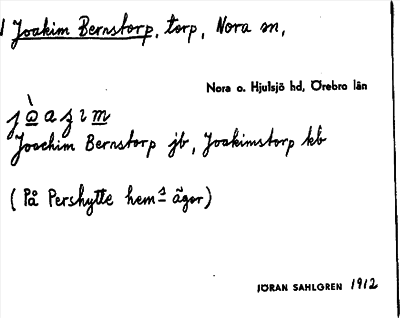 Joakim Bernstorp, torp, Nora sn,
Nora o. Hjulsjö hd, Örebro län
Joachim Bernstorp jb, Joakimstorp kb
(På Pershytte hems ägor)
JÖRAN SAHLGREN 1912